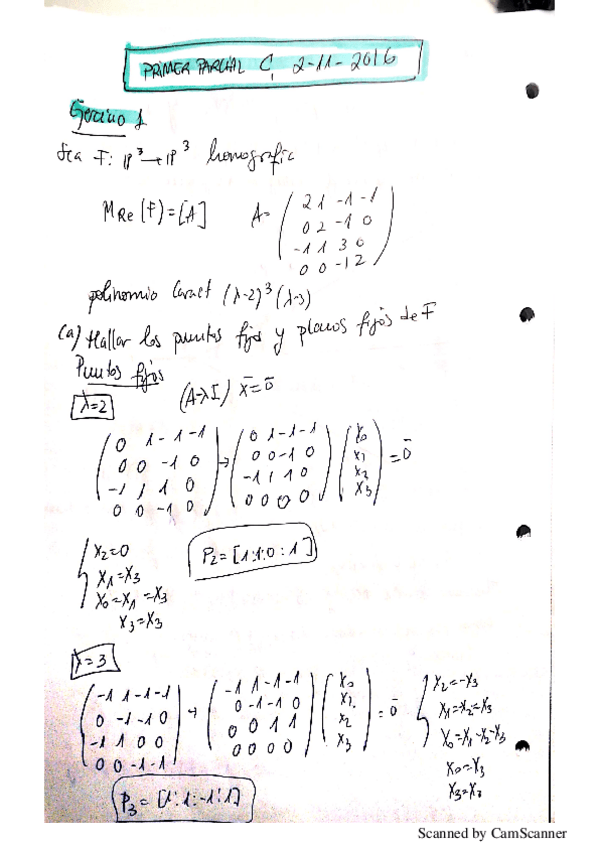 PRIMER PARCIAL C, 2-11-2016
Ejercicio 1
Sea F: P³→P³ homografia
M_Re(F)=[A] A= ( 2 1 -1 -1
0 2 -1 0
-1 1 3 0
0 0 -1 2 )
polinomio Caract (λ-2)³(λ-3)
(a) Hallar los puntos fijos y planos fijos de F
Puntos fijos
λ=2 (A-λI) x̄=0̄
( 0 1 -1 -1 ) ( 0 1 -1 -1 ) ( x₀ )
( 0 0 -1 0 ) → ( 0 0 -1 0 ) ( x₁ ) = 0̄
( -1 1 1 0 ) ( -1 1 1 0 ) ( x₂ )
( 0 0 -1 0 ) ( 0 0 0 0 ) ( x₃ )
x₂=0 P₂=[1:1:0:1]
x₁=x₃
x₀=x₁=x₃
x₃=x₃
λ=3
( -1 1 -1 -1 ) ( -1 1 -1 -1 ) ( x₀ ) x₂=-x₃
( 0 -1 -1 0 ) → ( 0 -1 -1 0 ) ( x₁ ) = 0̄ x₁=-x₂=x₃
( -1 1 0 0 ) ( 0 0 1 1 ) ( x₂ ) x₀=x₁-x₂-x₃
( 0 0 -1 -1 ) ( 0 0 0 0 ) ( x₃ ) x₀=x₃
x₃=x₃
P₃=[1:1:-1:1]
Scanned by CamScanner